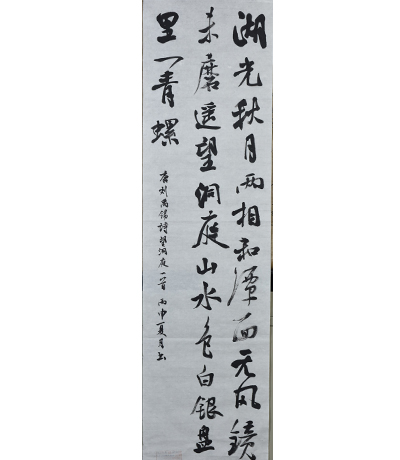 湖光秋月两相和潭面无风镜
未磨遥望洞庭山水色白银盘
里一青螺
唐刘禹锡詩望洞庭一首 丙申夏月书